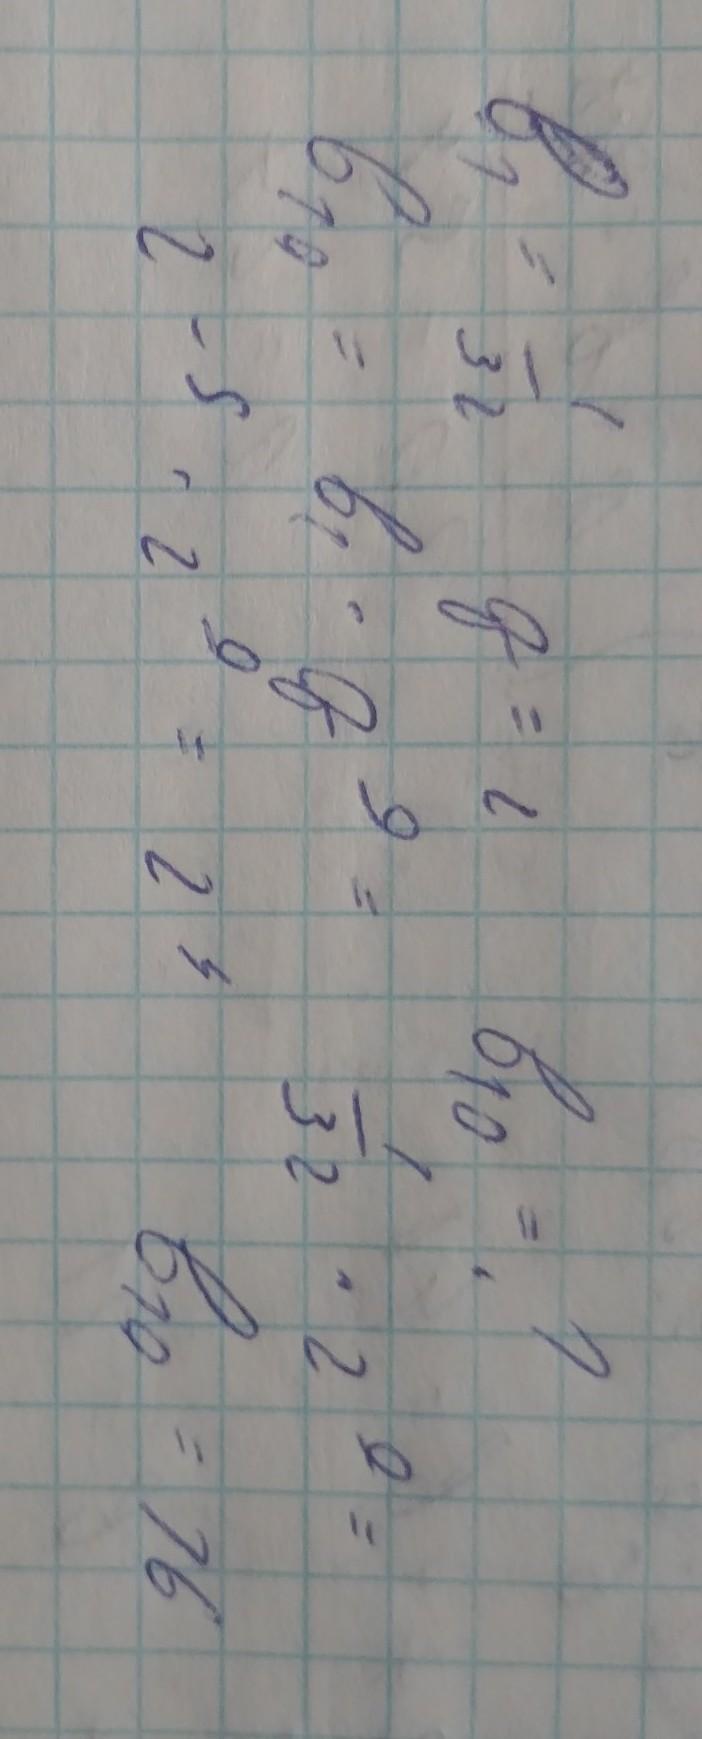 b₁ = 1/32 q = 2 b₁₀ = ?
b₁₀ = b₁ · q⁹ = 1/32 · 2⁹ =
2⁻⁵ · 2⁹ = 2⁴ b₁₀ = 16